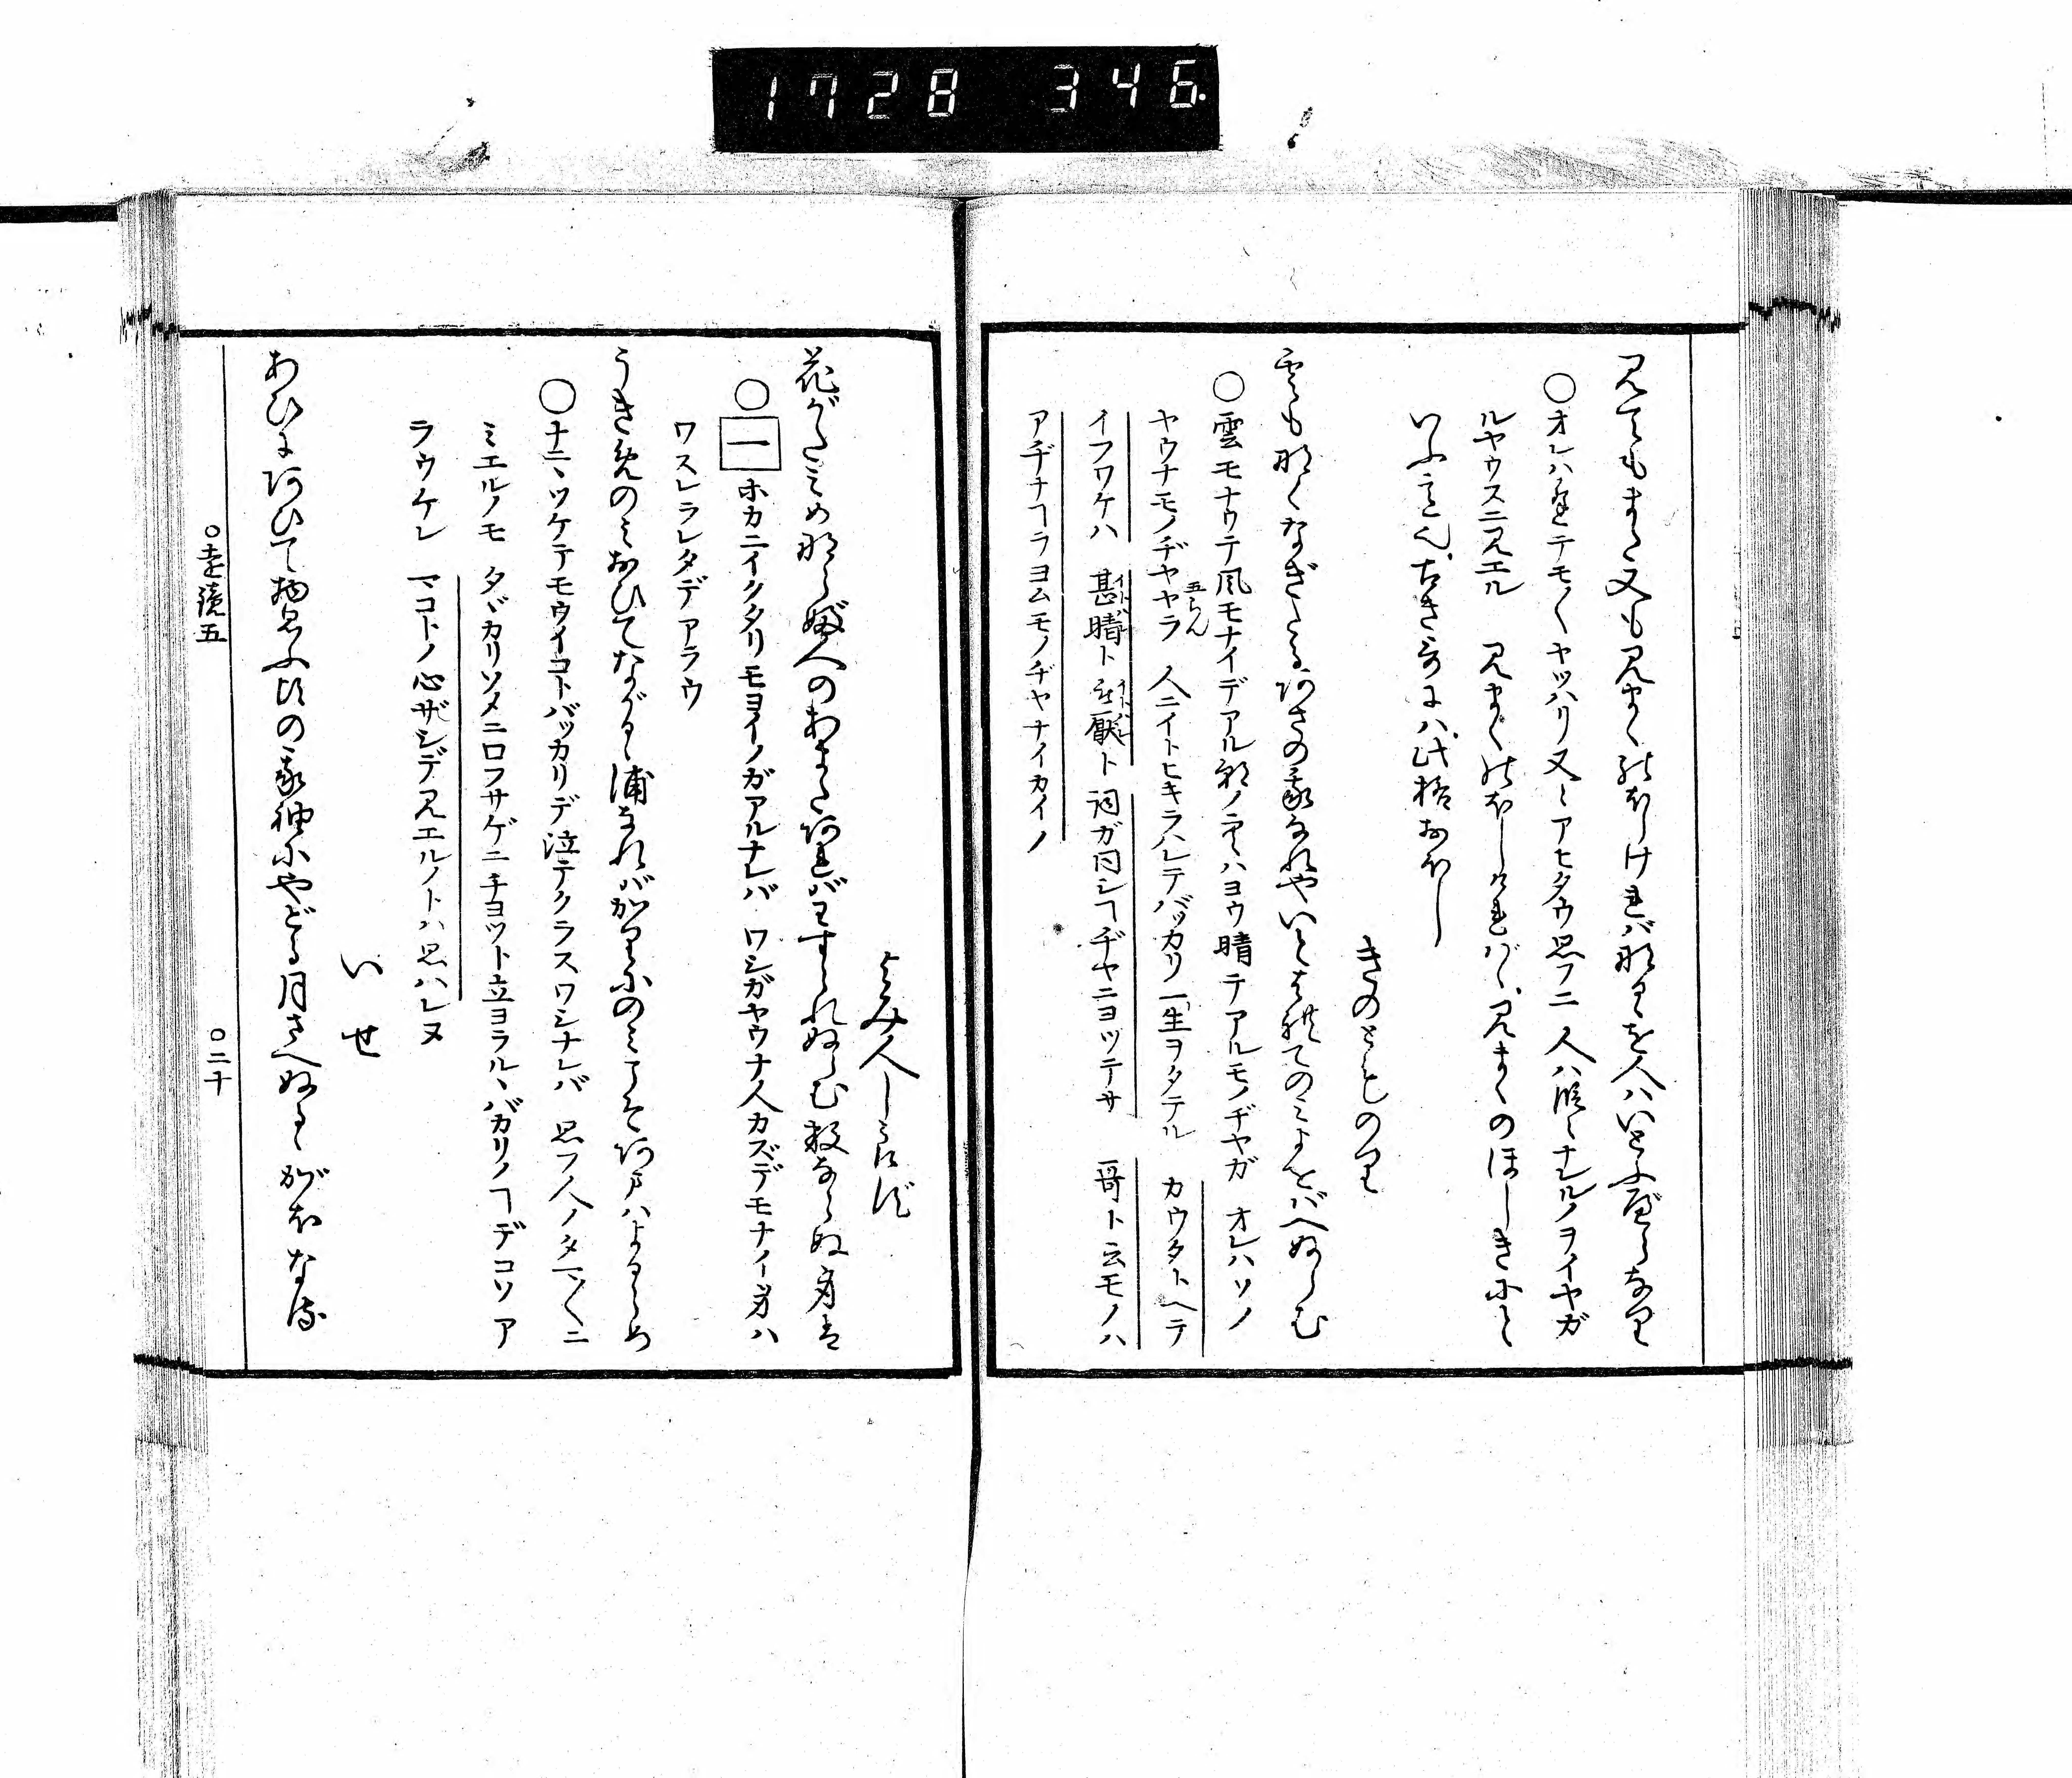 1728 346
見てもまた又も見まくのほしければなるゝを人はいとふべらなり
○オレハ逢テモ〱ヤッハリ又〻アヒタウ思フニ 人ハ心ヤスクナルノヲイヤガ
ルヤウスニ見エル 見まくほしければゝ見まくのほしきにと
いふ意也 古き哥には此格おほし
きのとものり
雲もなくなぎたるあさの我なれやいとはれてのみよをばへぬらむ
○雲モナウテ風モナイデアル朝ノ空ハヨウ晴テアルモノヂヤガ オレハソノ
ヤウナモノヂヤヤラ 人ニイトヒキラハレテバッカリ一生ヲタテル カウタトヘテ
イフワケハ 甚晴ト 被厭ト 詞ガ同シヿヂヤニヨッテサ 哥ト云モノハ
アヂナヿヲヨムモノヂヤナイカイノ
よみ人しらず
花がたみめならぶ人のあまたあればわすられぬらむ数ならぬ身は
○一 ホカニイクタリモヨイノガアルナレバ ワシガヤウナ人カズデモナイ身ハ
ワスレラレタデアラウ
うきめのみおひてながるゝ浦なればかりにのみこそあまはよるらめ
○ナニヽツケテモウイコトバッカリデ泣テクラスワシナレバ 思フ人ノタマ〱ニ
ミエルノモ タヾカリソメニ口フサゲニチョット立ヨラルヽバカリノヿデコソア
ラウケレ マコトノ心ザシデ見エルノトハ思ハレヌ
いせ
あひにあひて物思ふ比の我袖にやどる月さへぬるゝがほなる
○遠鏡五
○二十